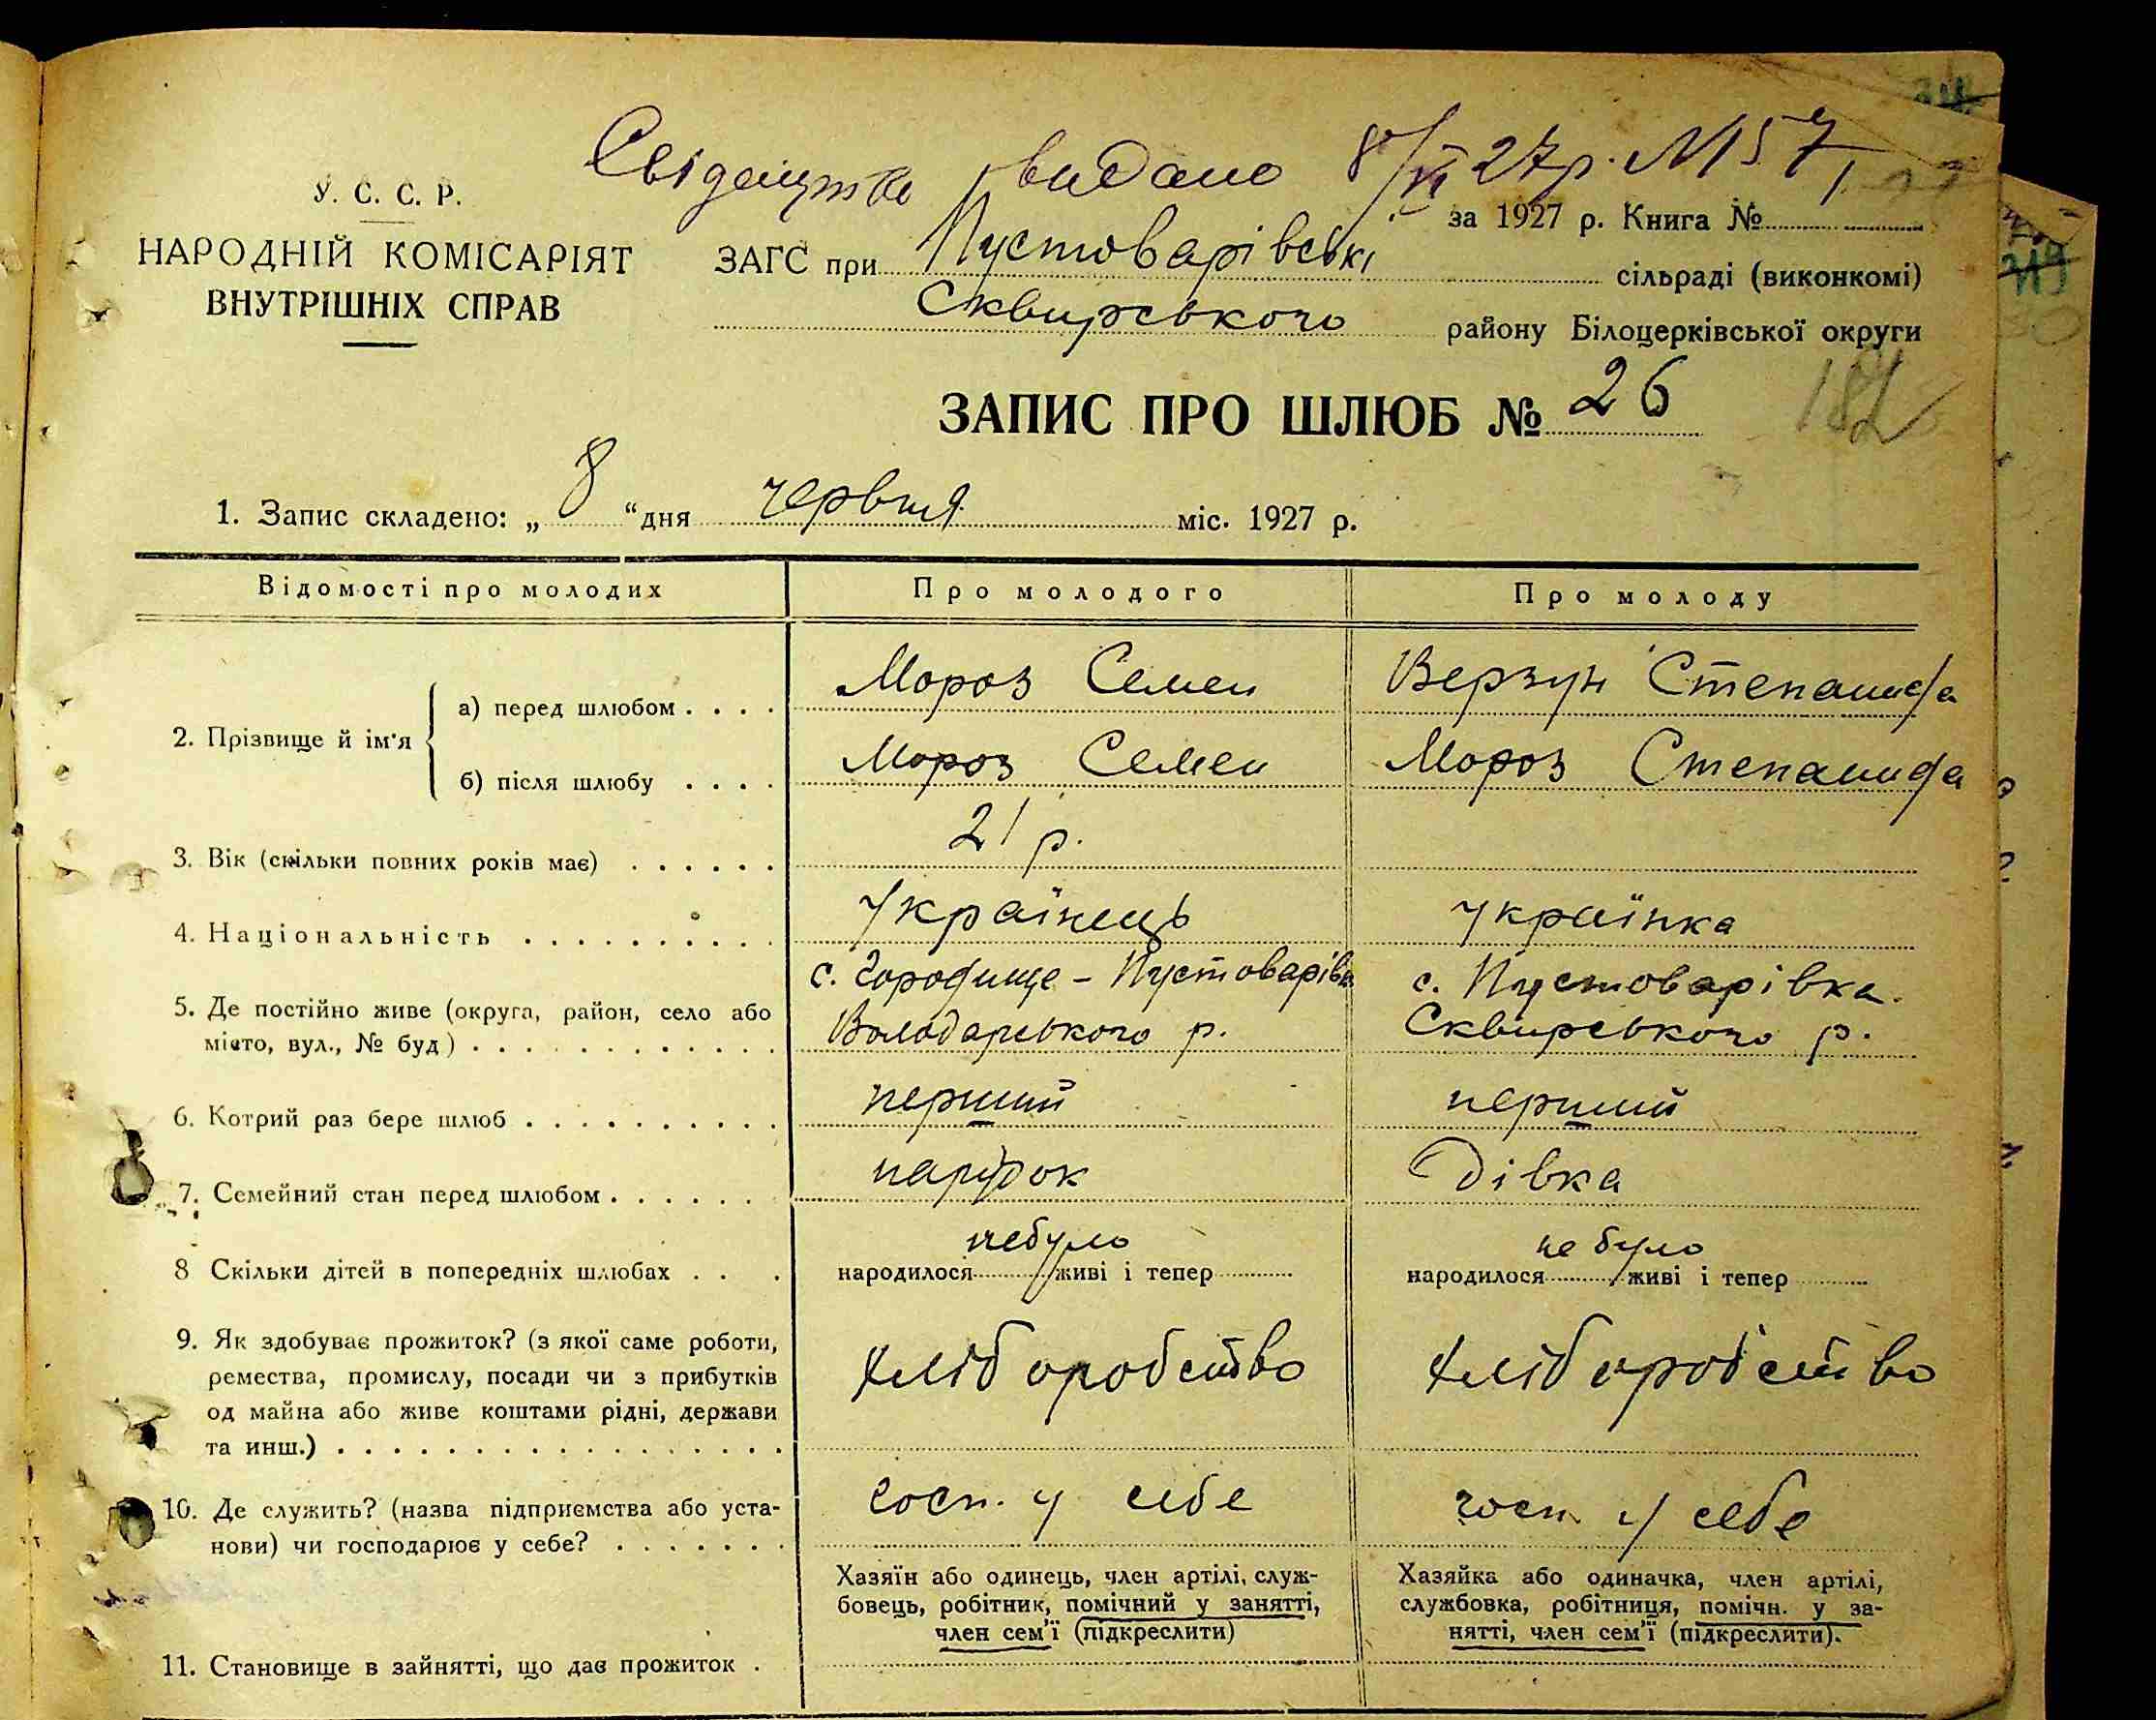 Свідоцтво видано 8/VI 27р. №157
У. С. С. Р.
НАРОДНІЙ КОМІСАРІЯТ
ВНУТРІШНІХ СПРАВ
за 1927 р. Книга №
ЗАГС при Пустоварівські сільраді (виконкомі)
Сквирського району Білоцерківської округи
ЗАПИС ПРО ШЛЮБ № 26
182
1. Запис складено: „ 8 “ дня червня міс. 1927 р.
Відомості про молодих Про молодого Про молоду
2. Прізвище й ім'я
а) перед шлюбом . . . . Мороз Семен Верзун Степанида
б) після шлюбу . . . . Мороз Семен Мороз Степанида
3. Вік (скільки повних років має) . . . . . . 21 р.
4. Національність . . . . . . . . . . Українець Українка
с. Городище - Пустоварівка с. Пустоварівка.
5. Де постійно живе (округа, район, село або
місто, вул., № буд) . . . . . . . . . . . . . Володарського р. Сквирського р.
6. Котрий раз бере шлюб . . . . . . . . . . перший перший
7. Семейний стан перед шлюбом . . . . . . парубок Дівка
небуло не було
8 Скільки дітей в попередніх шлюбах . . . народилося живі і тепер народилося живі і тепер
9. Як здобуває прожиток? (з якої саме роботи,
ремества, промислу, посади чи з прибутків хліборобство хліборобство
од майна або живе коштами рідні, держави
та инш.) . . . . . . . . . . . . . . . . .
10. Де служить? (назва підприємства або уста- госп. у себе госп. у себе
нови) чи господарює у себе? . . . . . . .
Хазяїн або одинець, член артілі, служ- Хазяйка або одиначка, член артілі,
бовець, робітник, помічний у занятті, службовка, робітниця, помічн. у за-
член сем'ї (підкреслити) нятті, член сем'ї (підкреслити).
11. Становище в зайнятті, що дає прожиток .